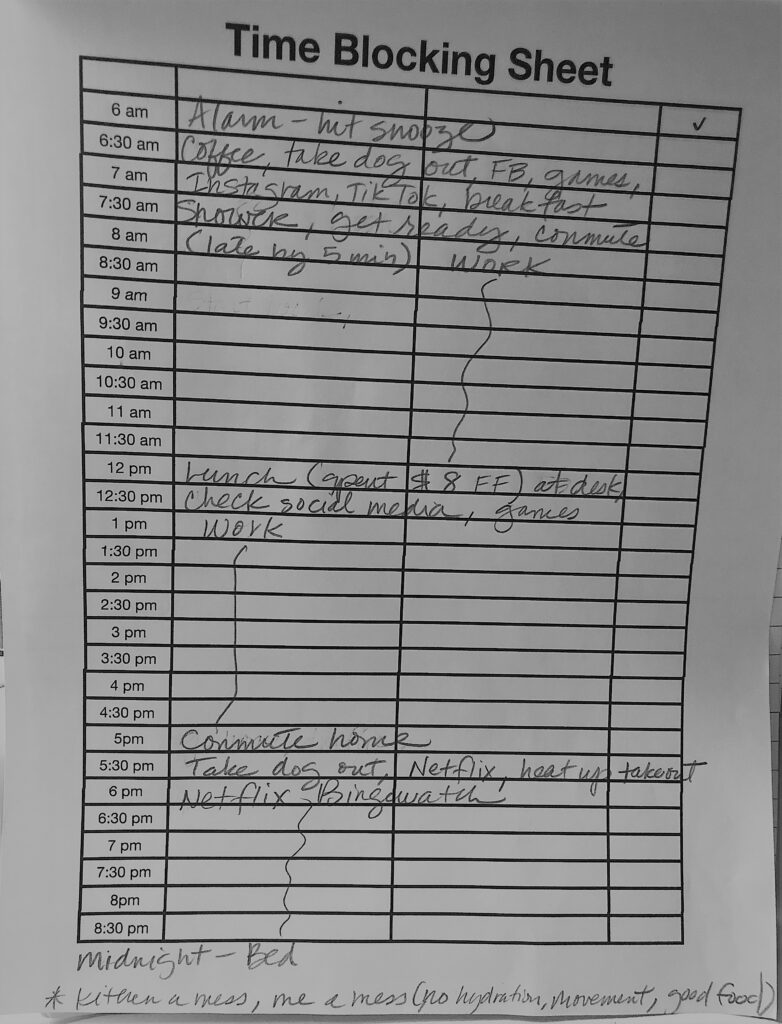 Time Blocking Sheet
✓
6 am Alarm - hit snooze
6:30 am Coffee, take dog out, FB, games,
7 am Instagram, TikTok, breakfast
7:30 am Shower, get ready, commute
8 am (late by 5 min) Work
8:30 am
9 am
9:30 am
10 am
10:30 am
11 am
11:30 am
12 pm Lunch (spent $8 FF) at desk,
12:30 pm Check social media, games
1 pm Work
1:30 pm
2 pm
2:30 pm
3 pm
3:30 pm
4 pm
4:30 pm
5pm Commute home
5:30 pm Take dog out, Netflix, heat up takeout
6 pm Netflix Bingewatch
6:30 pm
7 pm
7:30 pm
8pm
8:30 pm
Midnight - Bed
* Kitchen a mess, me a mess (no hydration, movement, good food)